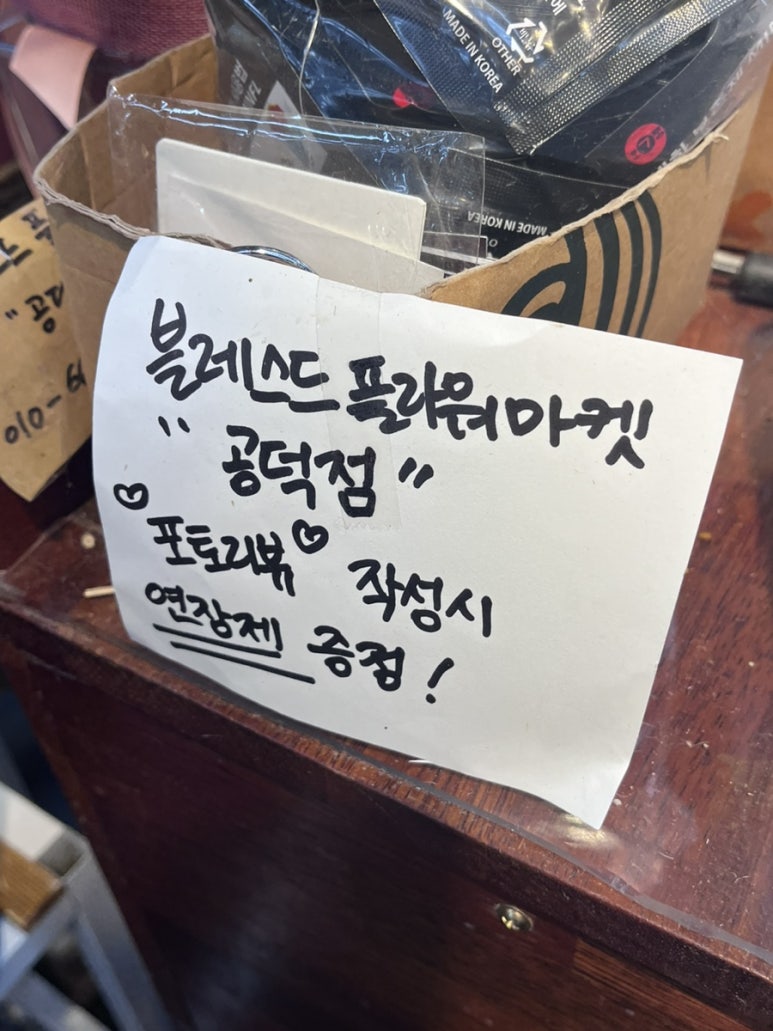 블레스드 플라워마켓
"공덕점"
♡포토리뷰♡ 작성시
연장제 증점!
MADE IN KOREA
OTHER
MADE IN KOREA
010-